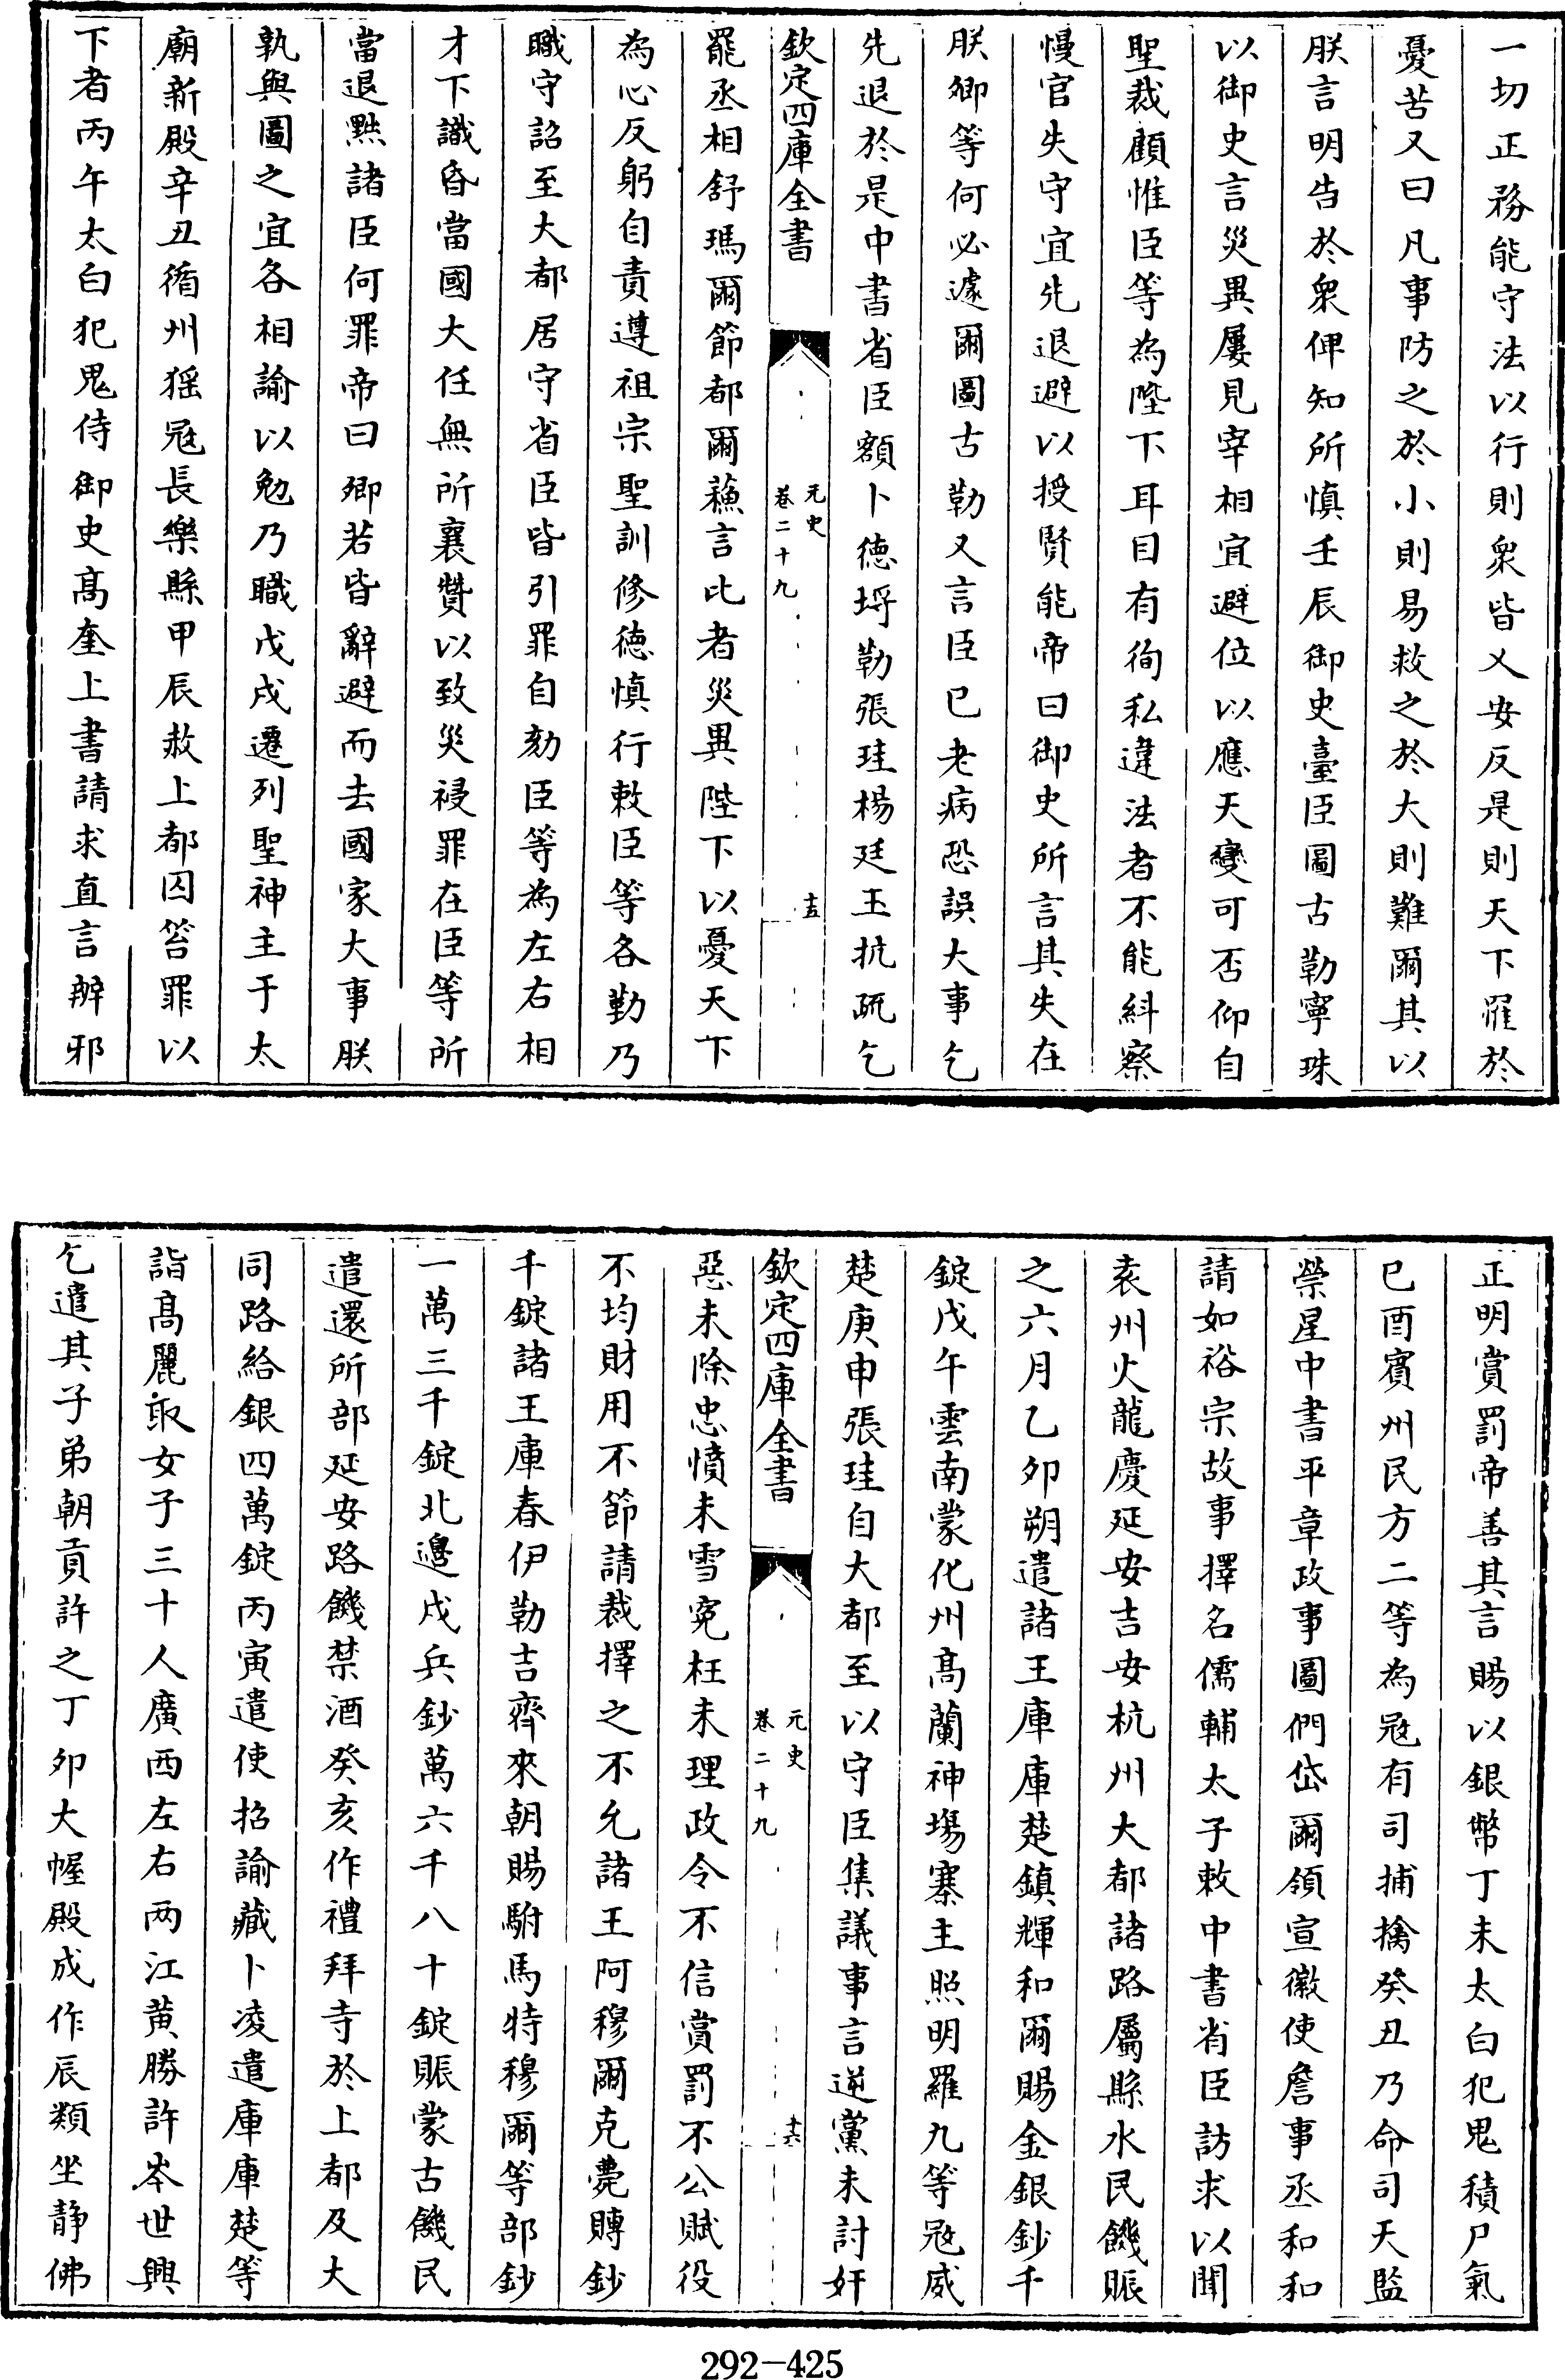 一切正務能守法以行則衆皆乂安反是則天下罹於
憂苦又曰凡事防之於小則易救之於大則難爾其以
朕言明告於衆俾知所慎壬辰御史臺臣圖古勒寧珠
以御史言災異屢見宰相宜避位以應天變可否仰自
聖裁顧惟臣等為陛下耳目有徇私違法者不能糾察
慢官失守宜先退避以授賢能帝曰御史所言其失在
朕卿等何必遽爾圖古勒又言臣已老病恐誤大事乞
先退於是中書省臣額卜徳埒勒張珪楊廷玉抗疏乞
欽定四庫全書
元史
卷二十九
十五
罷丞相舒瑪爾節都爾蘓言比者災異陛下以憂天下
為心反躬自責遵祖宗聖訓修徳慎行敕臣等各勤乃
職守詔至大都居守省臣皆引罪自劾臣等為左右相
才下識昏當國大任無所襄贊以致災祲罪在臣等所
當退黜諸臣何罪帝曰卿若皆辭避而去國家大事朕
孰與圖之宜各相諭以勉乃職戊戌遷列聖神主于太
廟新殿辛丑循州猺冦長樂縣甲辰赦上都囚笞罪以
下者丙午太白犯鬼侍御史高奎上書請求直言辨邪
正明賞罰帝善其言賜以銀幣丁未太白犯鬼積尸氣
已酉賓州民方二等為冦有司捕擒癸丑乃命司天監
禜星中書平章政事圖們岱爾領宣徽使詹事丞和和
請如裕宗故事擇名儒輔太子敕中書省臣訪求以聞
袁州火龍慶延安吉安杭州大都諸路屬縣水民饑賑
之六月乙卯朔遣諸王庫庫楚鎮輝和爾賜金銀鈔千
錠戊午雲南蒙化州高蘭神塲寨主照明羅九等冦威
楚庚申張珪自大都至以守臣集議事言逆黨未討奸
欽定四庫全書
元史
卷二十九
十六
惡未除忠憤未雪寃枉未理政令不信賞罰不公賦役
不均財用不節請裁擇之不允諸王阿穆爾克薨賻鈔
千錠諸王庫春伊勒吉齊來朝賜駙馬特穆爾等部鈔
一萬三千錠北邊戍兵鈔萬六千八十錠賑蒙古饑民
遣還所部延安路饑禁酒癸亥作禮拜寺於上都及大
同路給銀四萬錠丙寅遣使招諭藏卜凌遣庫庫楚等
詣高麗取女子三十人廣西左右两江黄勝許岑世興
乞遣其子弟朝貢許之丁卯大幄殿成作辰類坐静佛
292-425